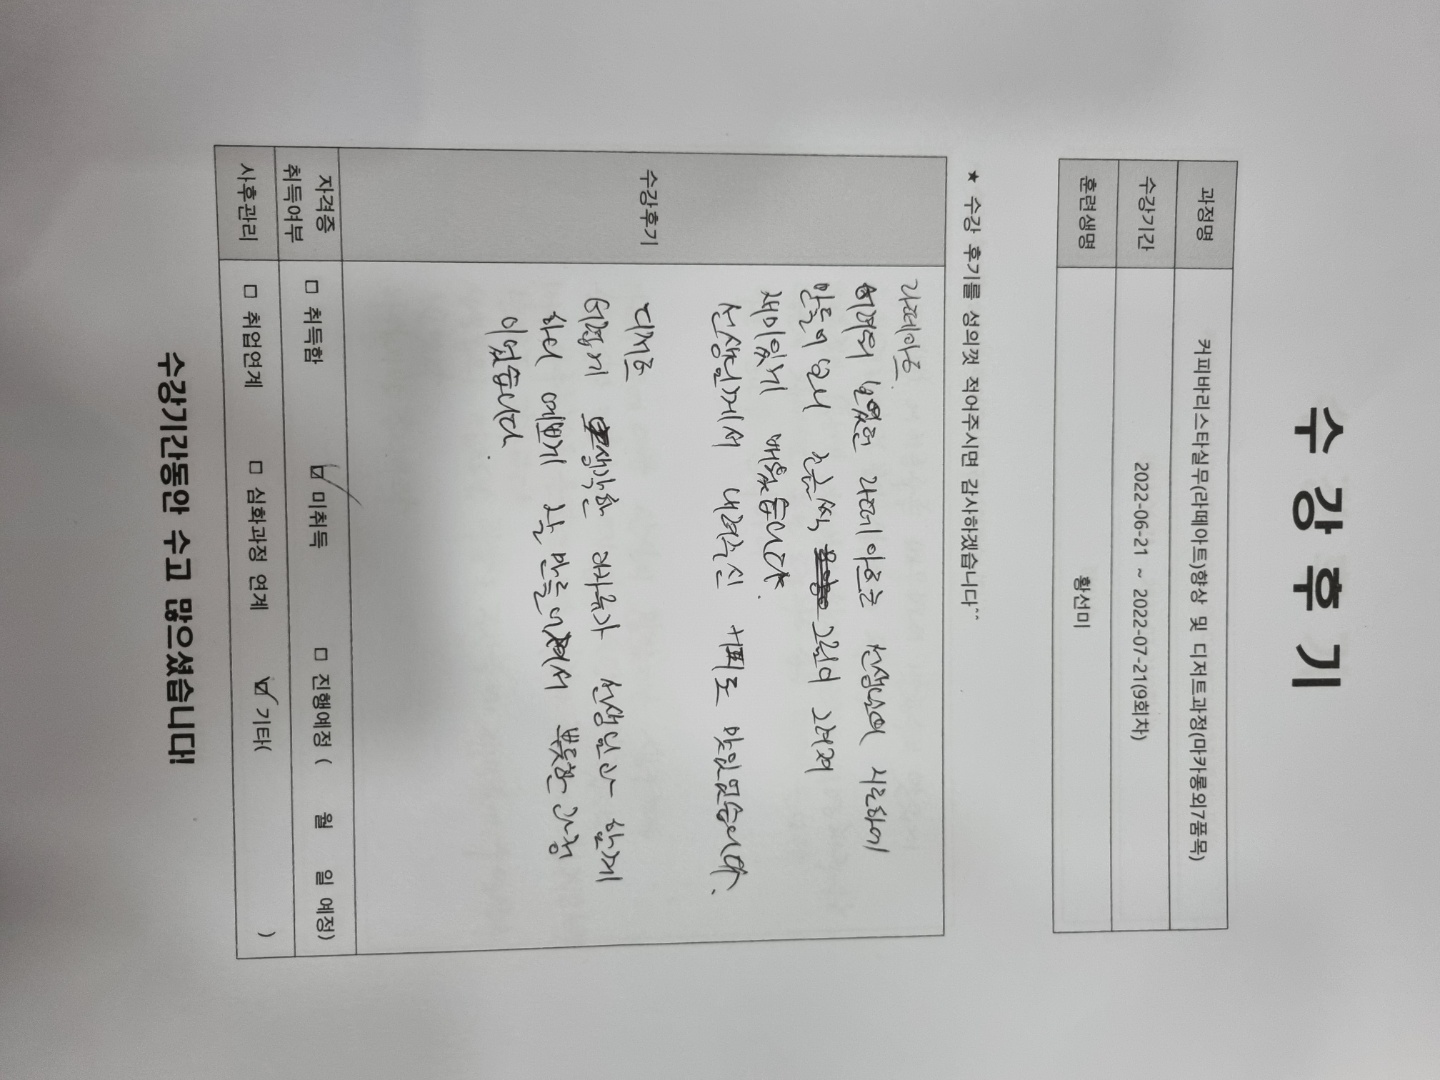 수강후기
과정명 커피바리스타실무(라떼아트)향상 및 디저트과정(마카롱외7품목)
수강기간 2022-06-21 ~ 2022-07-21(9회차)
훈련생명 황선미
★ 수강 후기를 성의껏 적어주시면 감사하겠습니다^^
수강후기
라떼아트
어렵던 라떼아트를 선생님이 지도하에
만들어 보니 조금씩 그림이 그려져
재미있게 배웠습니다.
선생님께서 내려주신 커피도 맛있었습니다.
디저트
어렵게 생각한 선생님과 함께
하니 예쁘게 잘 만들 뿌듯한 과정
이었습니다.
자격증 취득여부 □ 취득함 ☑ 미취득 □ 진행예정 ( 월 일 예정)
사후관리 □ 취업연계 □ 심화과정 연계 ☑ 기타( )
수강기간동안 수고 많으셨습니다!